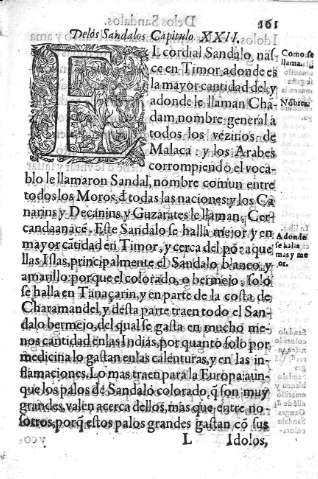 161
Delos Sandalos Capitulo XXII.
EL cordial Sandalo, nas-
ce en Timor, adonde es
la mayor cantidad del, y
adonde le llaman Chã-
dam, nombre general a
todos los vezinos de
Malaca: y los Arabes
corrompiendo el voca-
blo le llamaron Sandal, nombre comun entre
todos los Moros, d̃ todas las naciones: y los Ca
narins y Decanins, y Guzarates le llaman, Cer-
candaanacè. Este Sandalo se halla mejor y en
mayor cãtidad en Timor, y cerca del po: aque
llas Islas, principalmente el Sandalo blanco, y
amarillo: porque el colorado, o bermejo, solo
se halla en Tanaçarin, y en parte de la costa de
Charamandel, y desta parte traen todo el San-
dalo bermejo, del qual se gasta en mucho me-
nos cantidad en las Indias, por quanto solo por
medicina lo gastan en las calenturas, y en las in-
flamaciones. Lo mas traen para la Europa: aun-
que los palos de Sandalo colorado, q̃ son muy
grandes, valen acerca dellos, mas que entre no-
sotros, porq̃ estos palos grandes gastan cõ sus
L Idolos,
Como se
llama.
Nõbres.
Adonde
se halla
mas y me
jor.